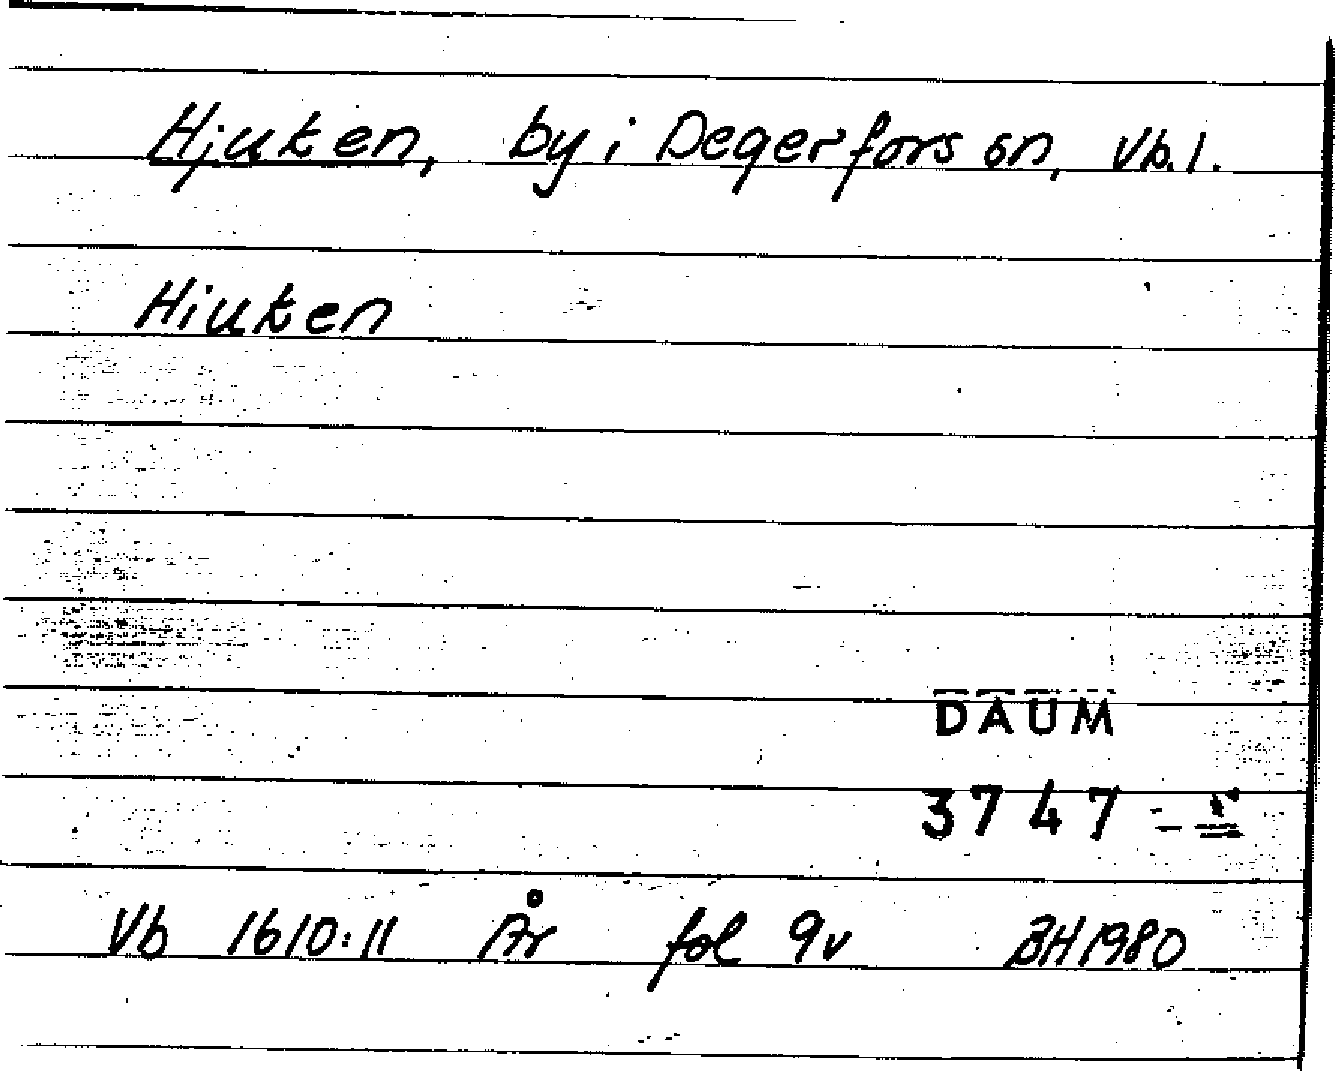 Hjuken, by i Degerfors sn, Vb.l.
Hiuken
DAUM
3747
Vb 1610:11 År fol 9v BH 1980